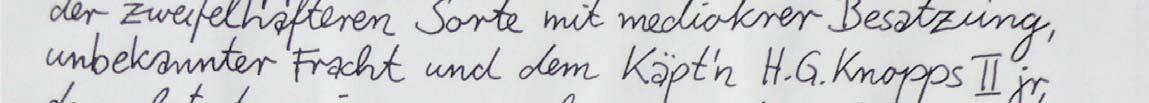 der zweifelhafteren Sorte mit mediokrer Besatzung,
unbekannter Fracht und dem Käpt'n H.G. Knopps II jr,